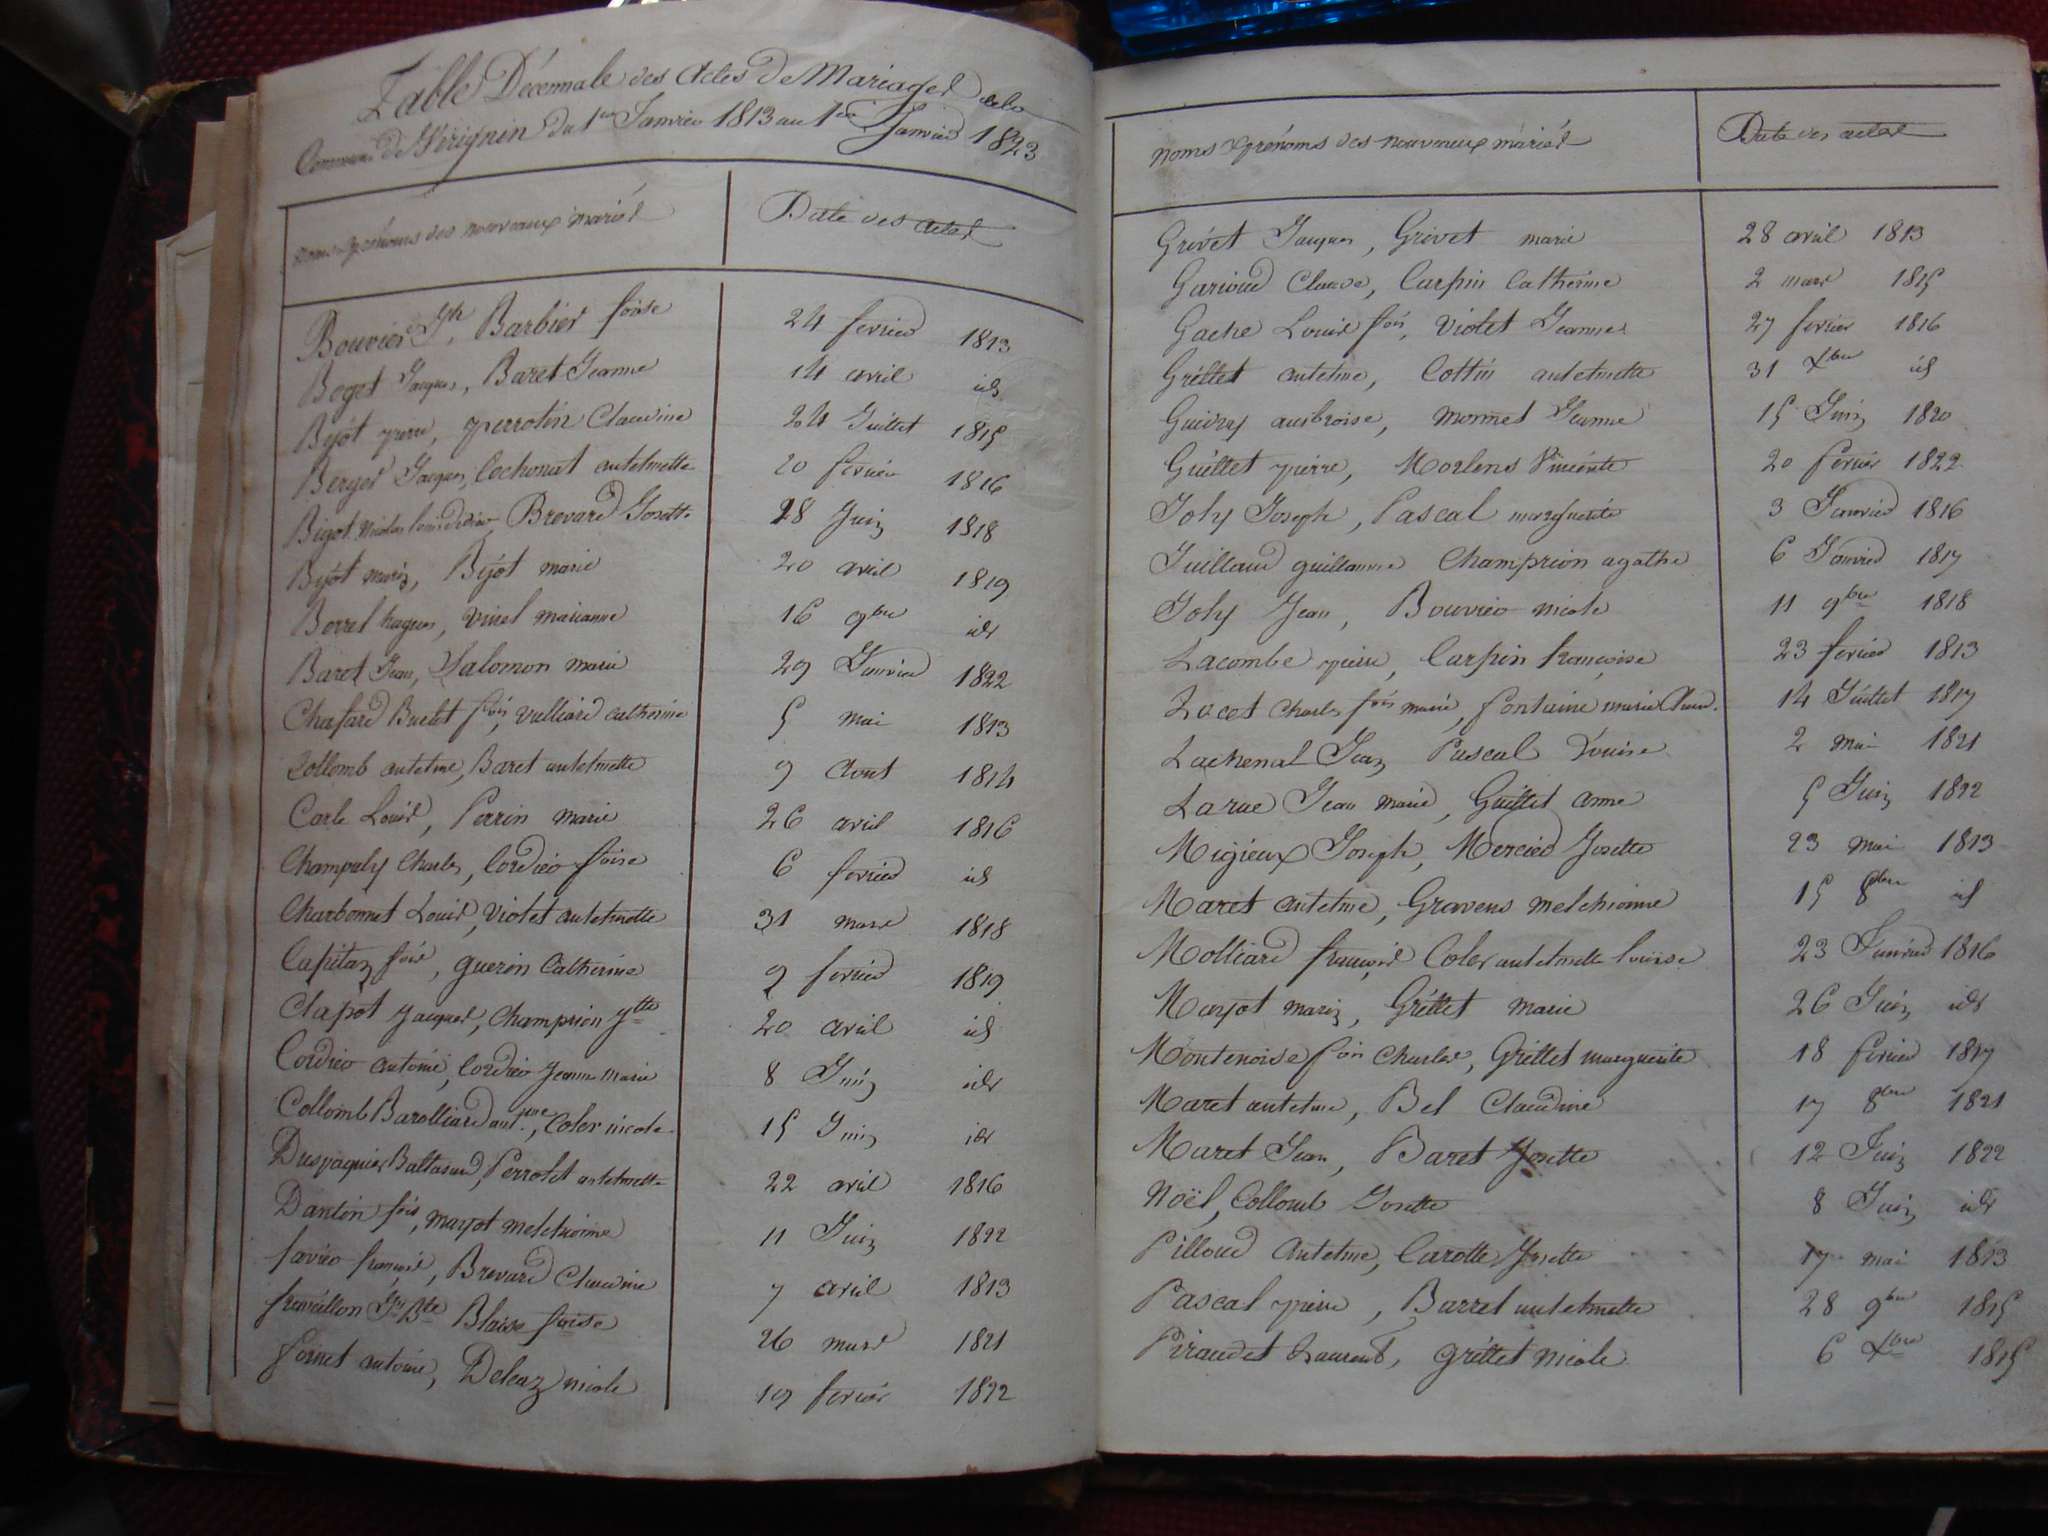 Table Décennale des Actes de Mariages de la
Commune de Vérignin du 1er Janvier 1813 au 1er Janvier 1823
noms & prénoms des nouveaux mariés Date des actes
Bouvier Jh, Barbier foise 24 fevrier 1813
Boget Jacques, Baret Jeanne 14 avril id
Bijôt pierre, perrotin Claudine 24 Juillet 1815
Berger Jacques, Cochonat antelmette 20 fevrier 1816
Bigot Nicolas Louis Brevard Josette 28 Juin 1818
Bijôt marin, Bijôt marie 20 avril 1819
Borrel hugues, Vinet marianne 16 9bre id
Baret Jean, Salomon marie 29 Janvier 1822
Chafard Buclet fois, Vulliard catherine 5 mai 1813
Collomb antelme, Baret antelmette 9 Aout 1814
Carle Louis, Perrin marie 26 avril 1816
Champaly Charles, Cordier foise 6 fevrier id
Charbonnet Louis, Violet antelmette 31 mars 1818
Capitaz fois, guerin Catherine 9 fevrier 1819
Clapot Jacques, Champrion Jtte 20 avril id
Cordier antoine, Cordier Jeanne marie 8 Juin id
Collomb Barolliard antme, Coler nicole 15 Juin id
Duspaquier Baltasard, Perrolet antelmette 22 avril 1816
Dantin fois, mayot melchionne 11 Juin 1822
favier françois, Brevard Claudine 7 avril 1813
francillon Jn Bte Blaise foise 26 mars 1821
fornet antoine, Deleaz nicole 19 fevrier 1822
noms & prénoms des nouveaux mariés Date des actes
Grivet Jacques, Grivet marie 28 avril 1813
Garioud Claude, Carpin Catherine 2 mars 1815
Gache Louis fois, Violet Jeanne 27 fevrier 1816
Gréllet antelme, Cottin antelmette 31 Xbre id
Guidray ambroise, monnet Jeanne 15 Juin 1820
Guillet pierre, Morlens Vincente 20 fevrier 1822
Joly Joseph, Pascal marguerite 3 Janvier 1816
Juilland guillaume Champrion agathe 6 Janvier 1817
Joly Jean, Bouvier nicole 11 9bre 1818
Lacombe pierre, Carpin françoise 23 fevrier 1813
Lucet Charles fois marie, fontaine marie Claud. 14 Juillet 1817
Lachenal Jean Pascal Louise 2 mai 1821
Larue Jean marie, Guillet anne 5 Juin 1822
Migieux Joseph, Mercier Josette 23 mai 1813
Maret antelme, Gravens melchionne 15 8bre id
Molliard françois Coler antelmette louise 23 Janvier 1816
Mayot marin, Gréllet marie 26 Juin id
Montenoise fois Charles, Gréllet marguerite 18 fevrier 1817
Maret antelme, Bel Claudine 17 8bre 1821
Maret Jean, Baret Josette 12 Juin 1822
Noël, Collomb Josette 8 Juin id
Pilloud Antelme, Carotte Josette 17 mai 1813
Pascal pierre, Barret antelmette 28 9bre 1815
Piraudet Laurent, gréllet nicole 6 Xbre 1815